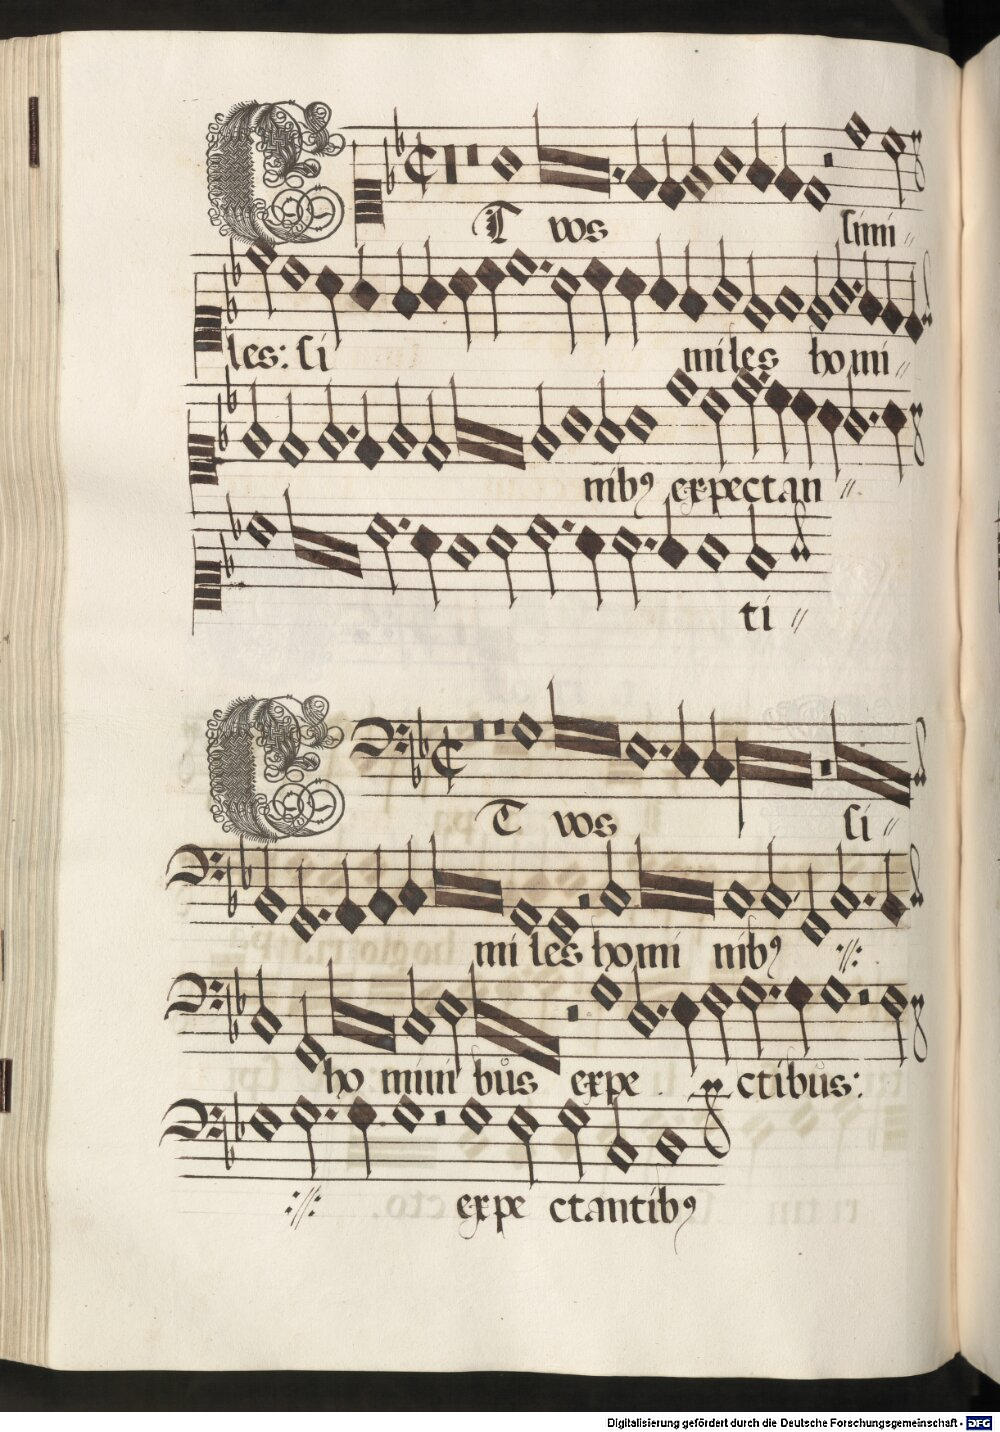 ET vos simi
les: si miles homi
nibꝰ expectan
ti
ET vos si
mi les homi nibꝰ ://:
ho mini bus expe ctibus:
:// : expe ctantibꝰ
Digitalisierung gefördert durch die Deutsche Forschungsgemeinschaft - DFG